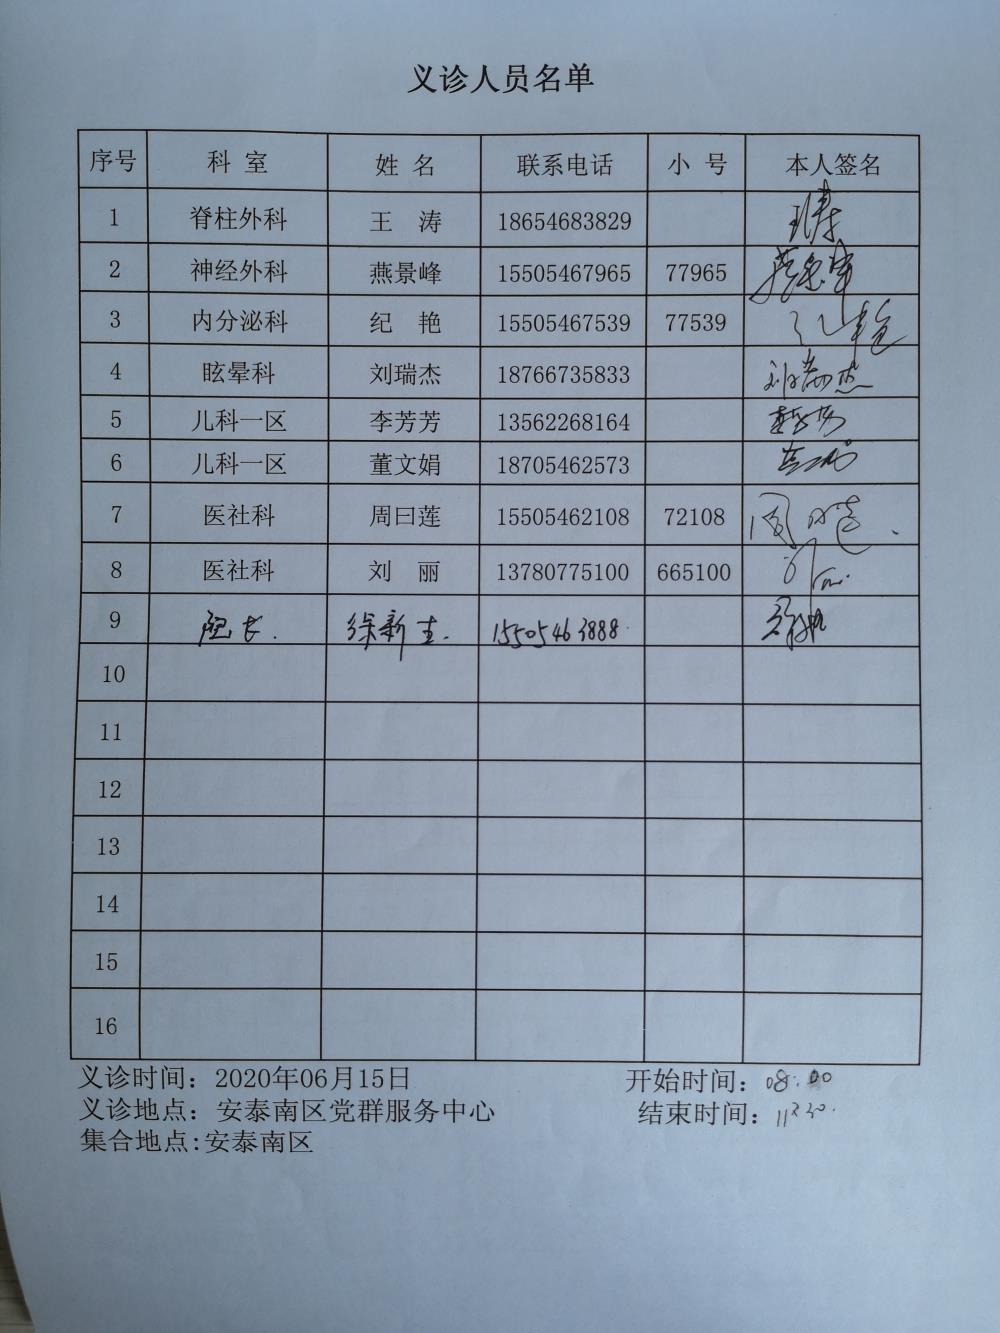 义诊人员名单
序号 科 室 姓 名 联系电话 小 号 本人签名
1 脊柱外科 王 涛 18654683829 王涛
2 神经外科 燕景峰 15505467965 77965 燕景峰
3 内分泌科 纪 艳 15505467539 77539 纪艳
4 眩晕科 刘瑞杰 18766735833 刘瑞杰
5 儿科一区 李芳芳 13562268164
6 儿科一区 董文娟 18705462573
7 医社科 周曰莲 15505462108 72108
8 医社科 刘 丽 13780775100 665100
9 院长. 徐新生. 15505463888
10
11
12
13
14
15
16
义诊时间：2020年06月15日 开始时间：08:00
义诊地点：安泰南区党群服务中心 结束时间：
集合地点:安泰南区